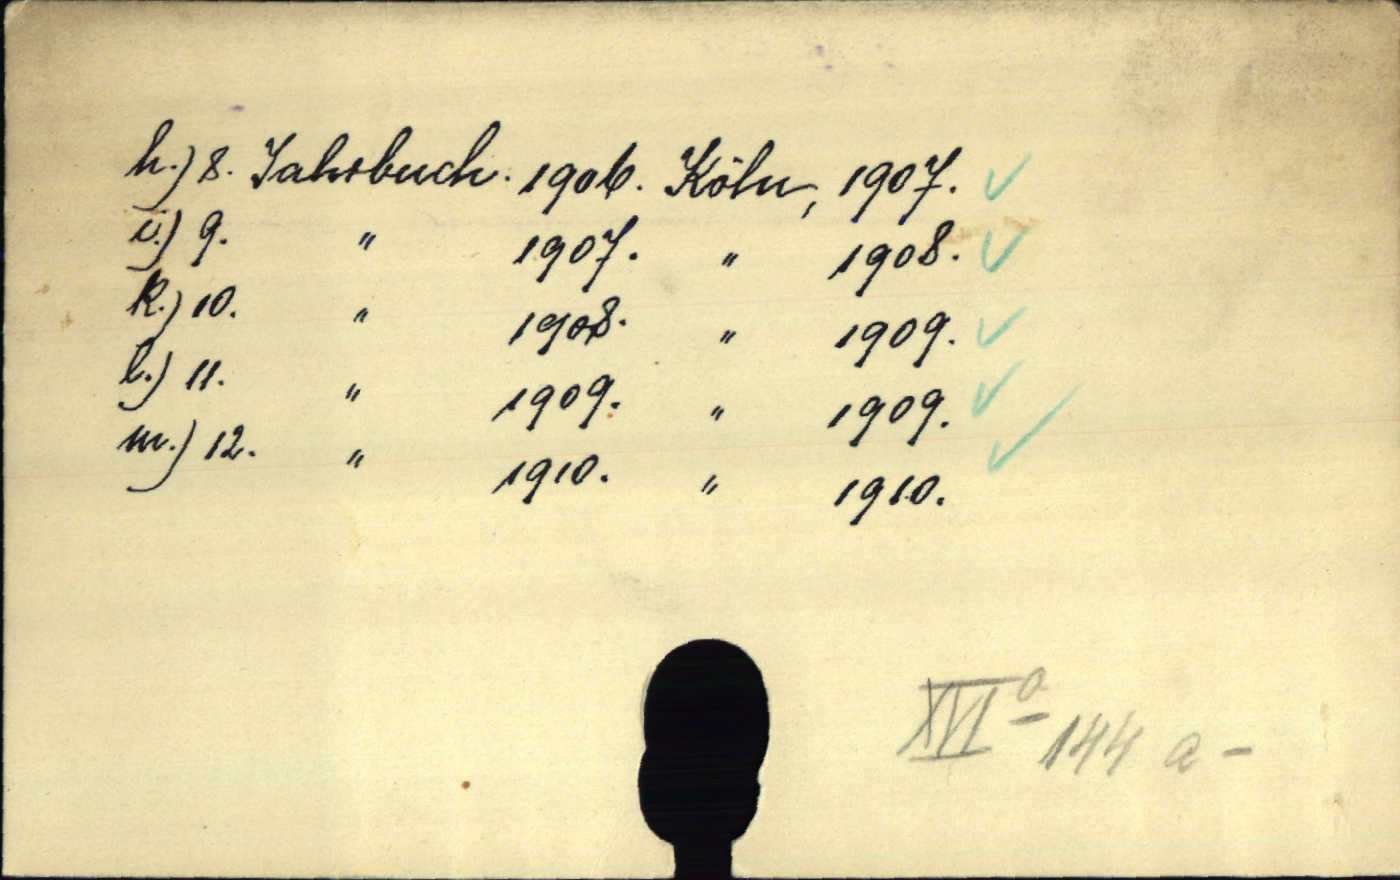 h.) 8. Jahrbuch. 1906. Köln, 1907. ✓
i.) 9. " 1907. " 1908. ✓
k.) 10. " 1908. " 1909. ✓
l.) 11. " 1909. " 1909. ✓
m.) 12. " 1910. " 1910. ✓
XVI a 144 a -